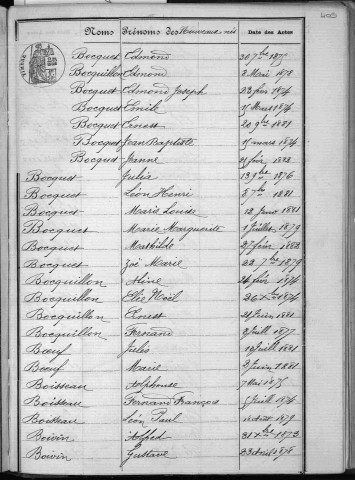 Noms Prénoms des Nouveaux nés Date des Actes
Bocquet Edmond 30 7bre 1875
Bocquillon Edmond 2 Mai 1878
Bocquet Edmond Joseph 23 fév 1874
Bocquet Emile 17 Mars 1874
Bocquet Ernest 20 9bre 1881
Bocquet Jean Baptiste 17 mars 1874
Bocquet Jeanne 21 fév 1882
Bocquet Julia 13 9bre 1876
Bocquet Léon Henri 5 7bre 1881
Bocquet Marie Louise 12 Janv 1881
Bocquet Marie Marguerite 1 Juillet 1879
Bocquet Mathilde 27 fév 1882
Bocquet Zoé Marie 22 7bre 1879
Bocquillon Aline 24 fév 1874
Bocquillon Elie Noël 26 Xbre 1874
Bocquillon Ernest 21 Juin 1881
Bocquillon Fernand 2 Juill 1877
Bœuf Jules 1 Juill 1881
Bœuf Marie 3 Juin 1881
Boisseau Alphonse 7 Mai 1875
Boisseau Fernand François 5 Juill 1874
Boisseau Léon Paul Août 1879
Boivin Alfred 31 Xbre 1873
Boivin Gustave 23 Août 1878